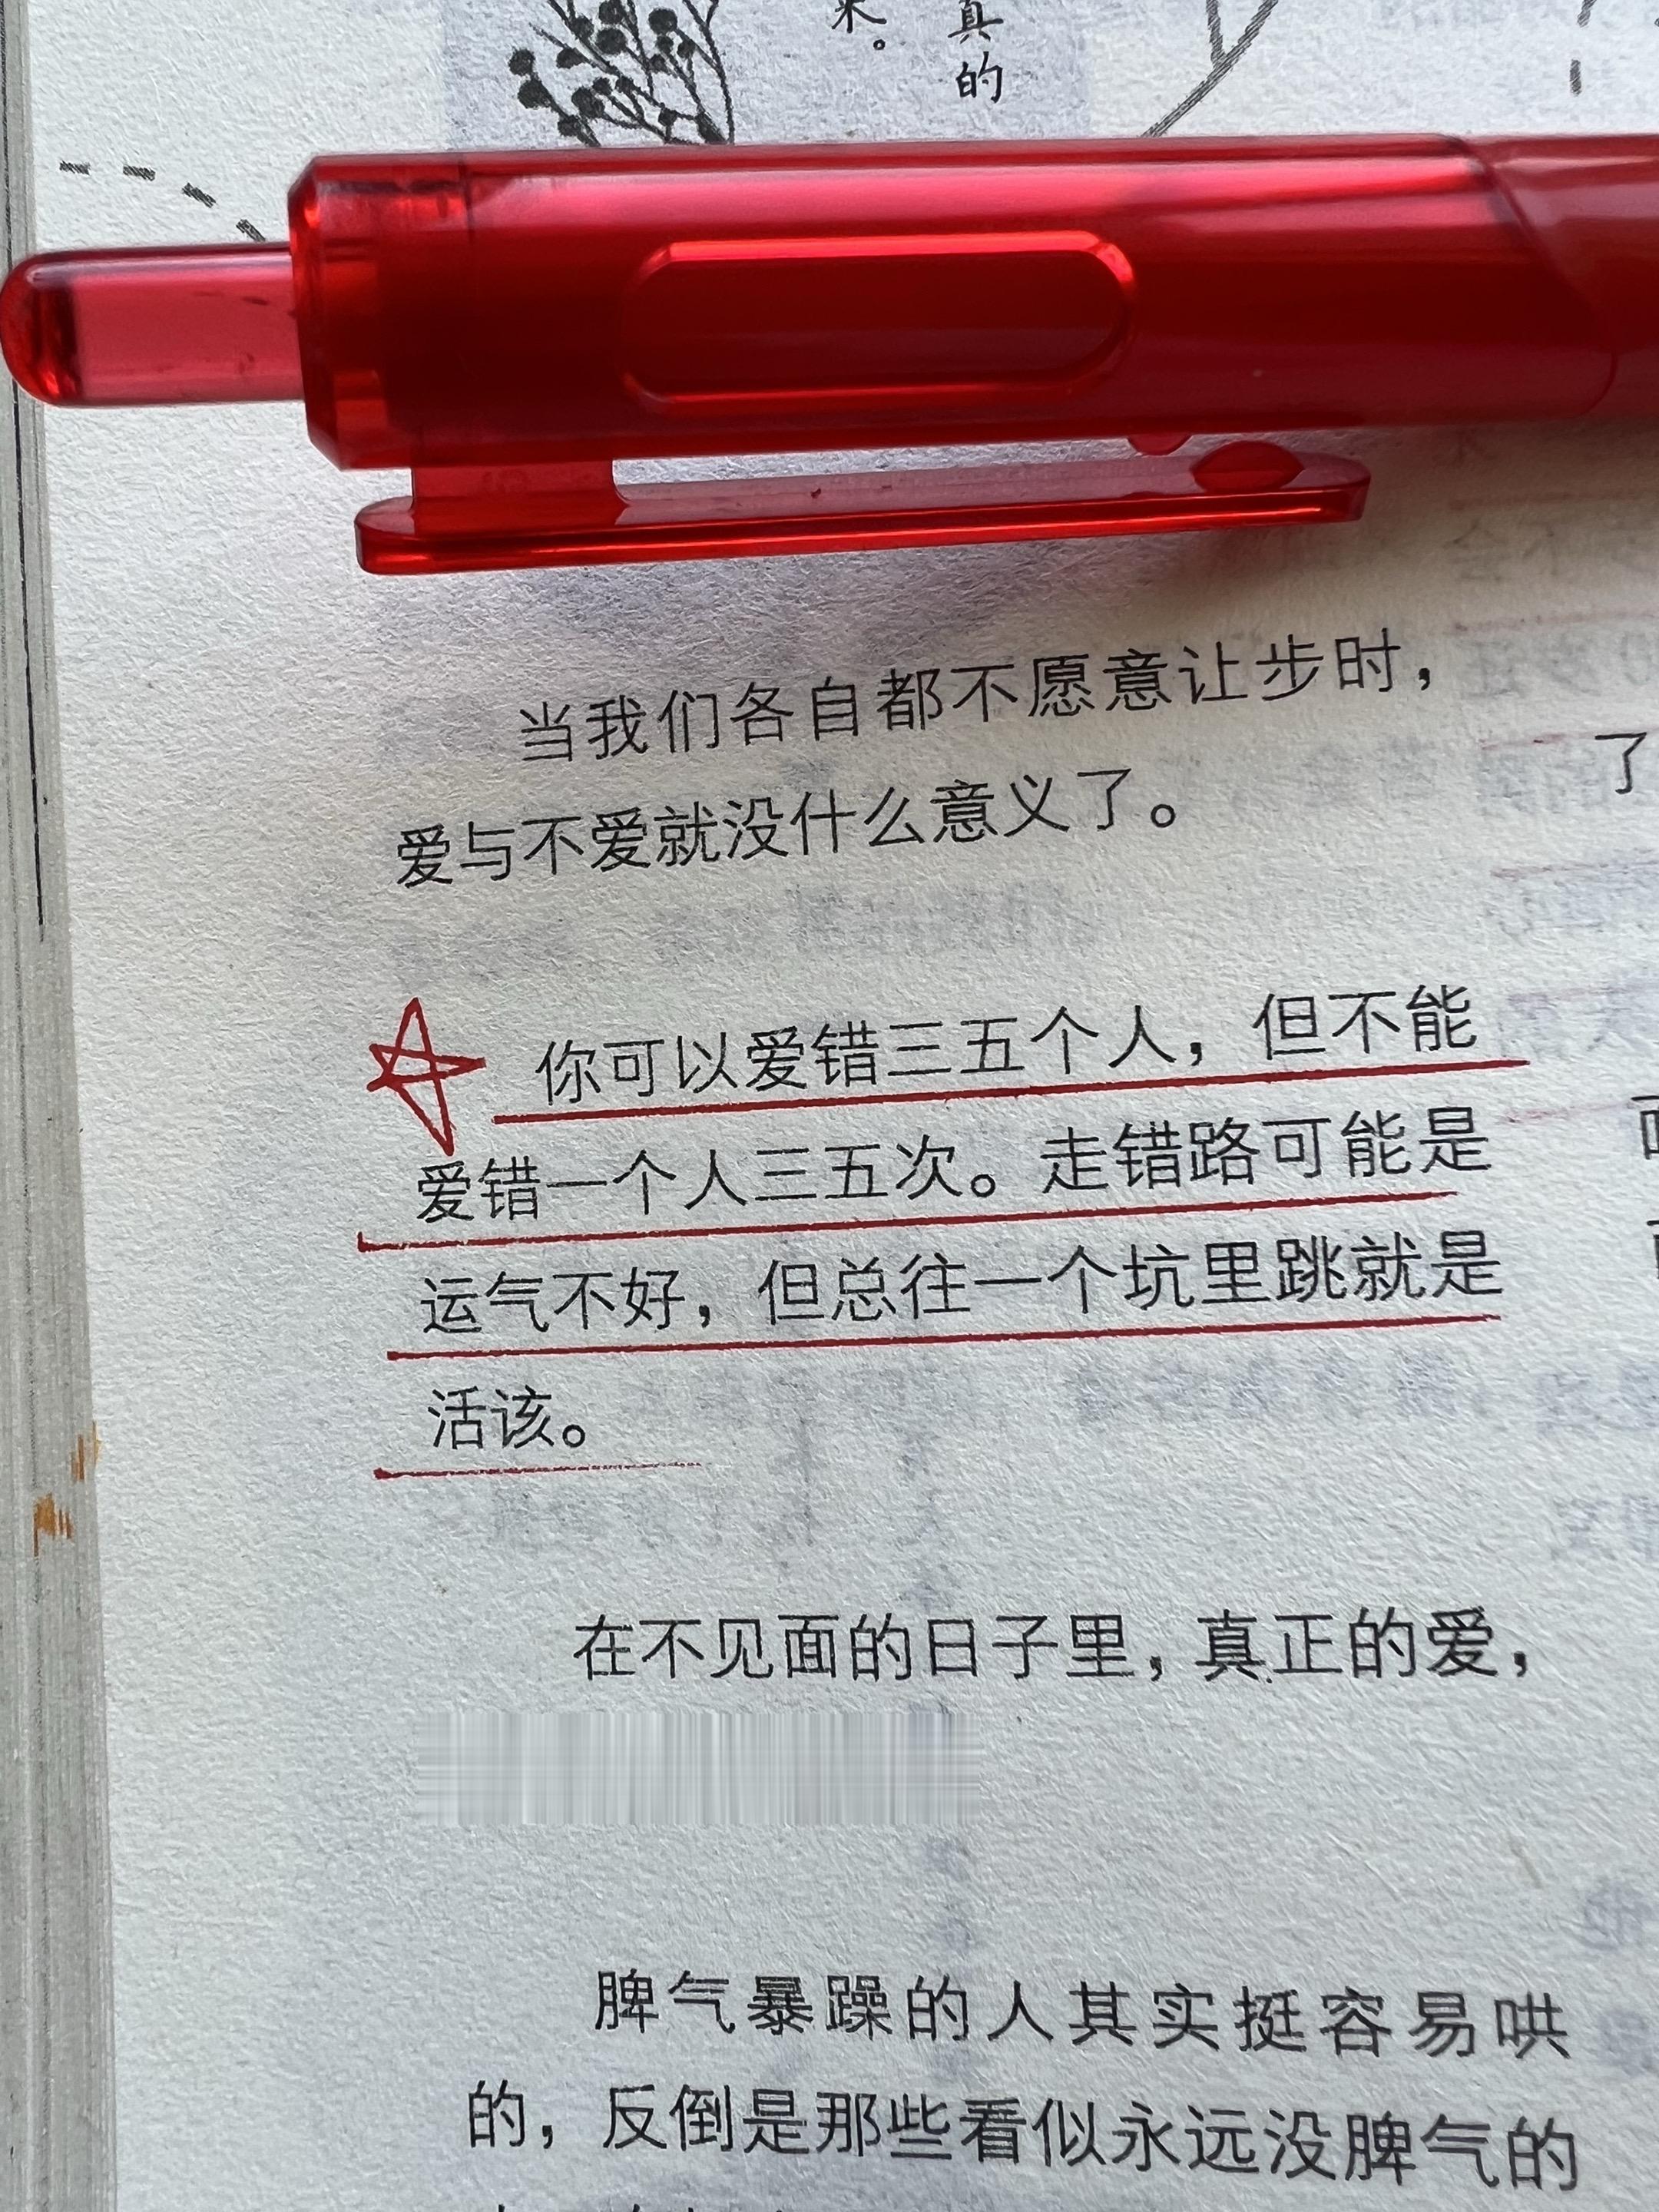 真的
来。
当我们各自都不愿意让步时，
爱与不爱就没什么意义了。
你可以爱错三五个人，但不能
爱错一个人三五次。走错路可能是
运气不好，但总往一个坑里跳就是
活该。
在不见面的日子里，真正的爱，
脾气暴躁的人其实挺容易哄
的，反倒是那些看似永远没脾气的
了